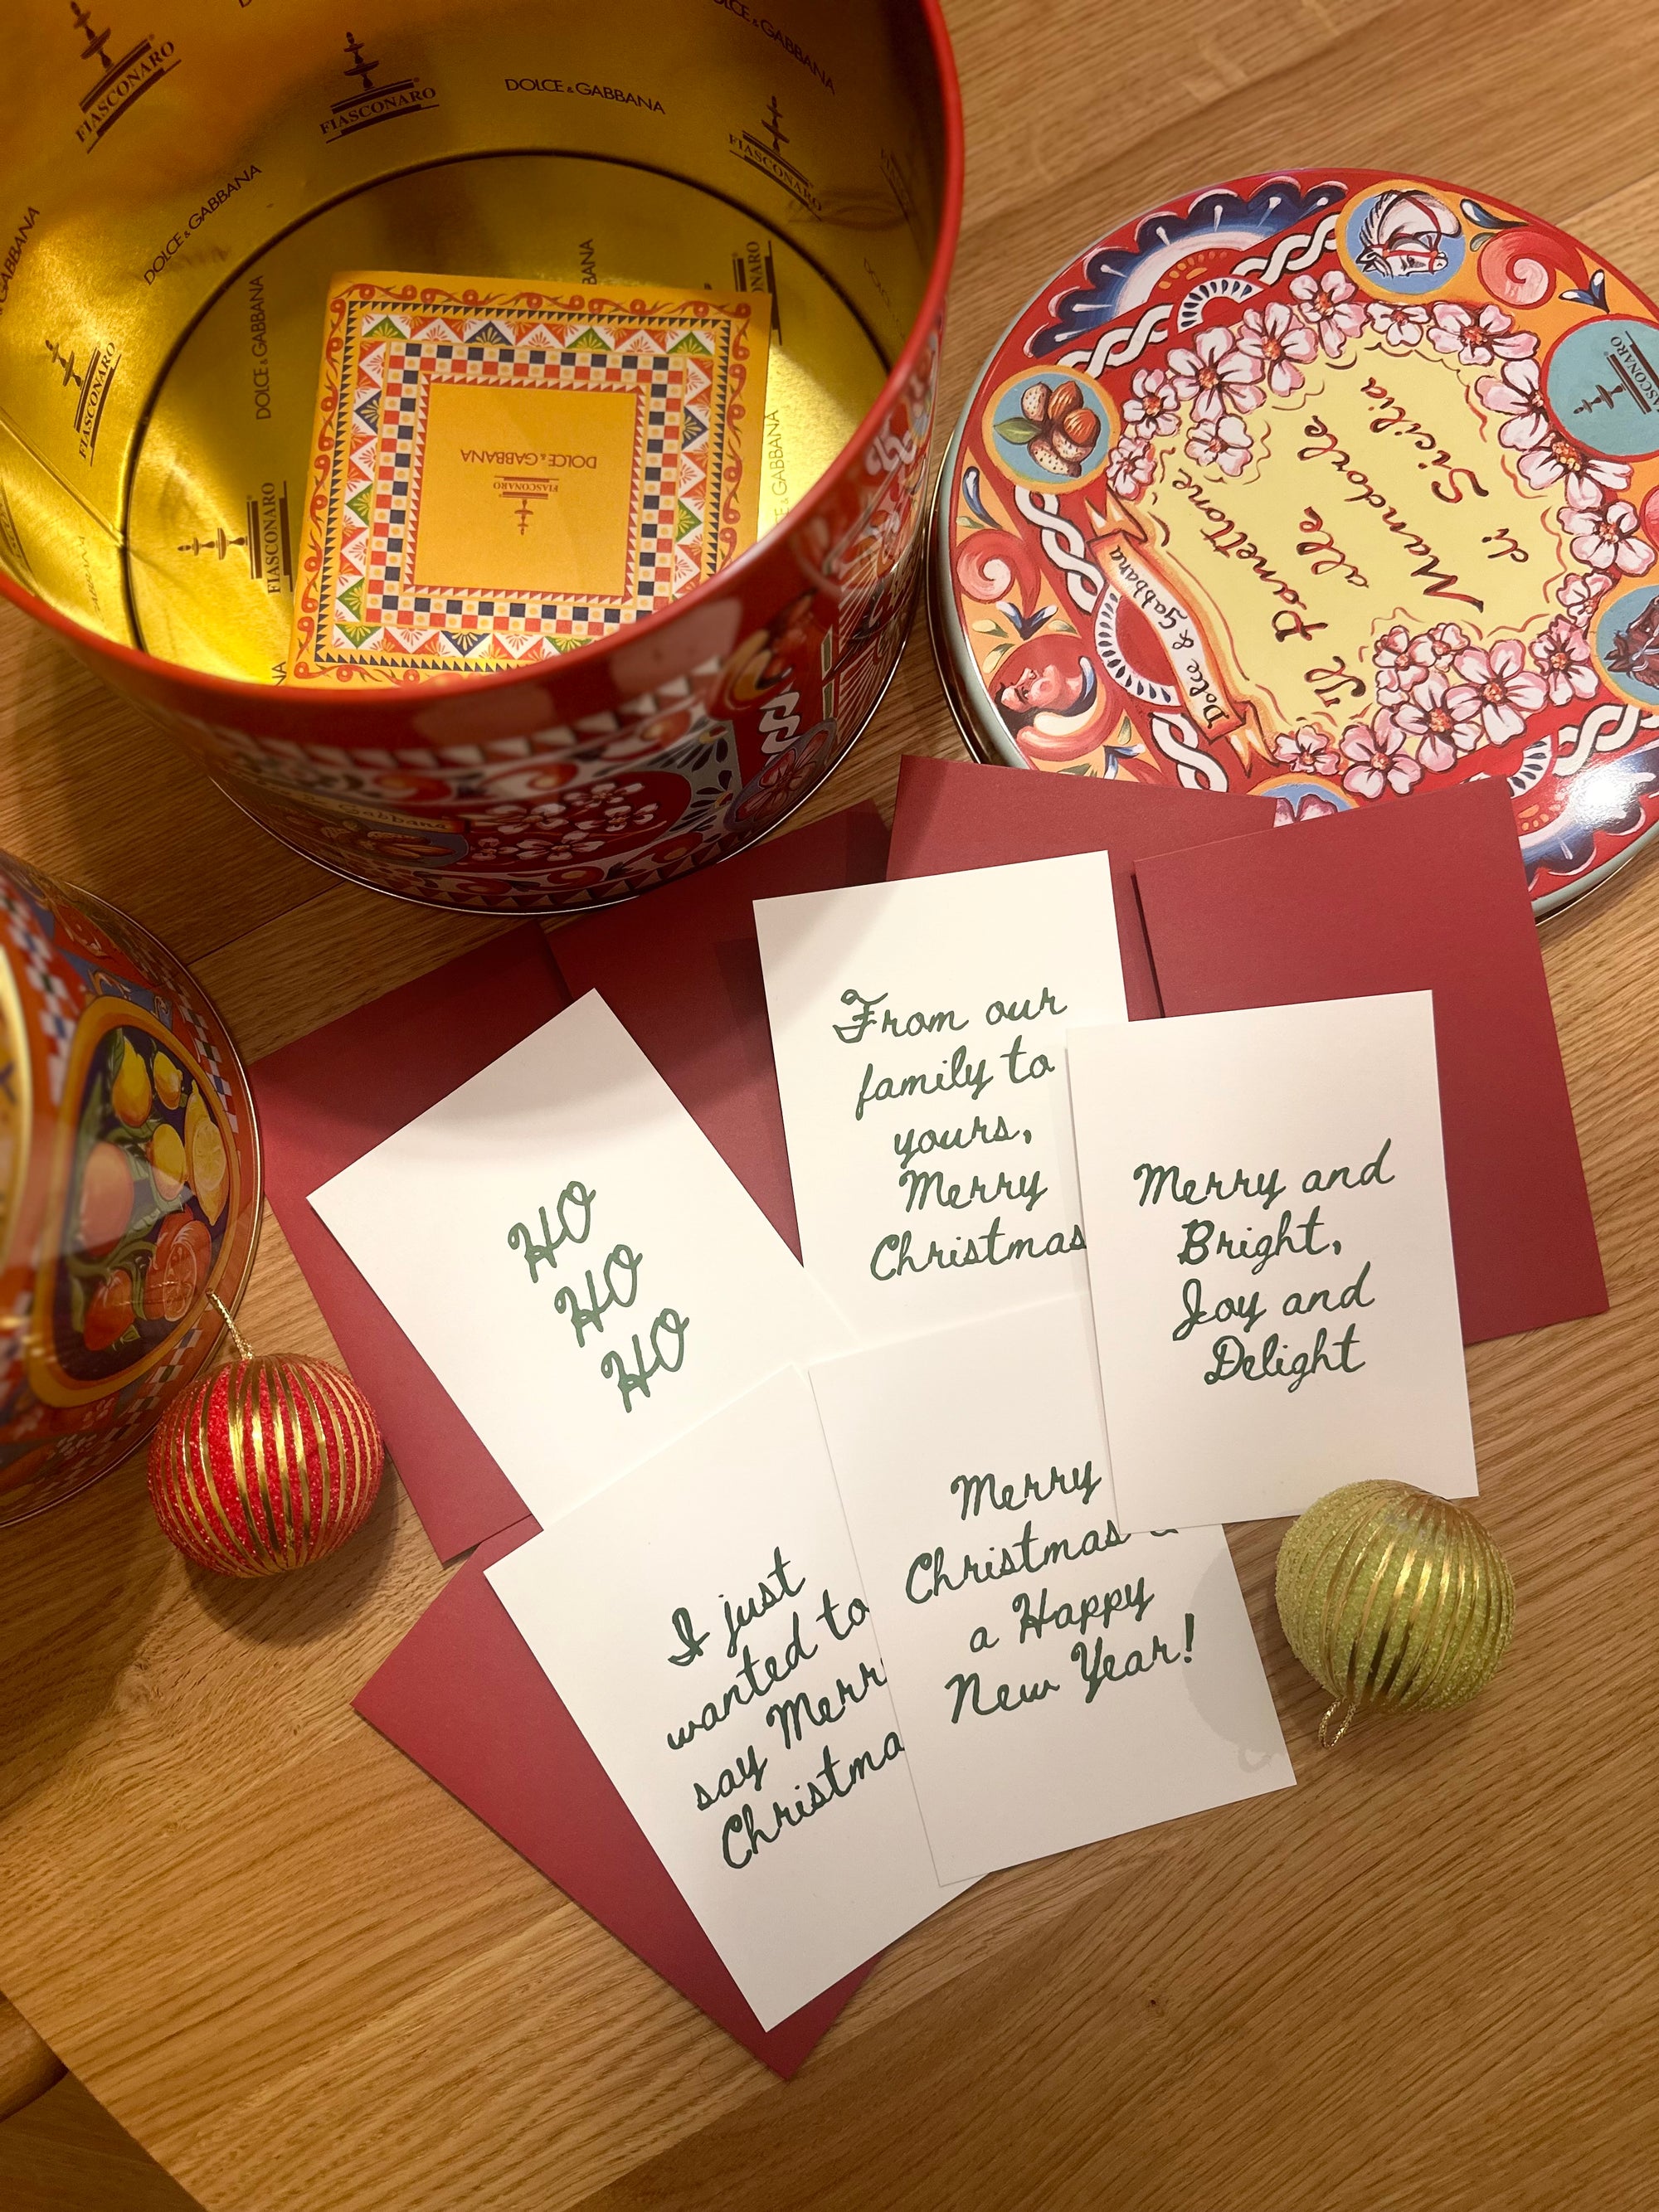 FIASCONARO
FIASCONARO
DOLCE & GABBANA
DOLCE & GABBANA
FIASCONARO
DOLCE & GABBANA
GABBANA
FIASCONARO
DOLCE & GABBANA
FIASCONARO
GABBANA
DOLCE & GABBANA
FIASCONARO
Il Panettone
alle
Mandorle
di Sicilia
Dolce & Gabbana
From our
family to
yours,
Merry
Christmas
HO
HO
HO
Merry and
Bright,
Joy and
Delight
I just
wanted to
say Merr
Christma
Merry
Christmas
a Happy
New Year!